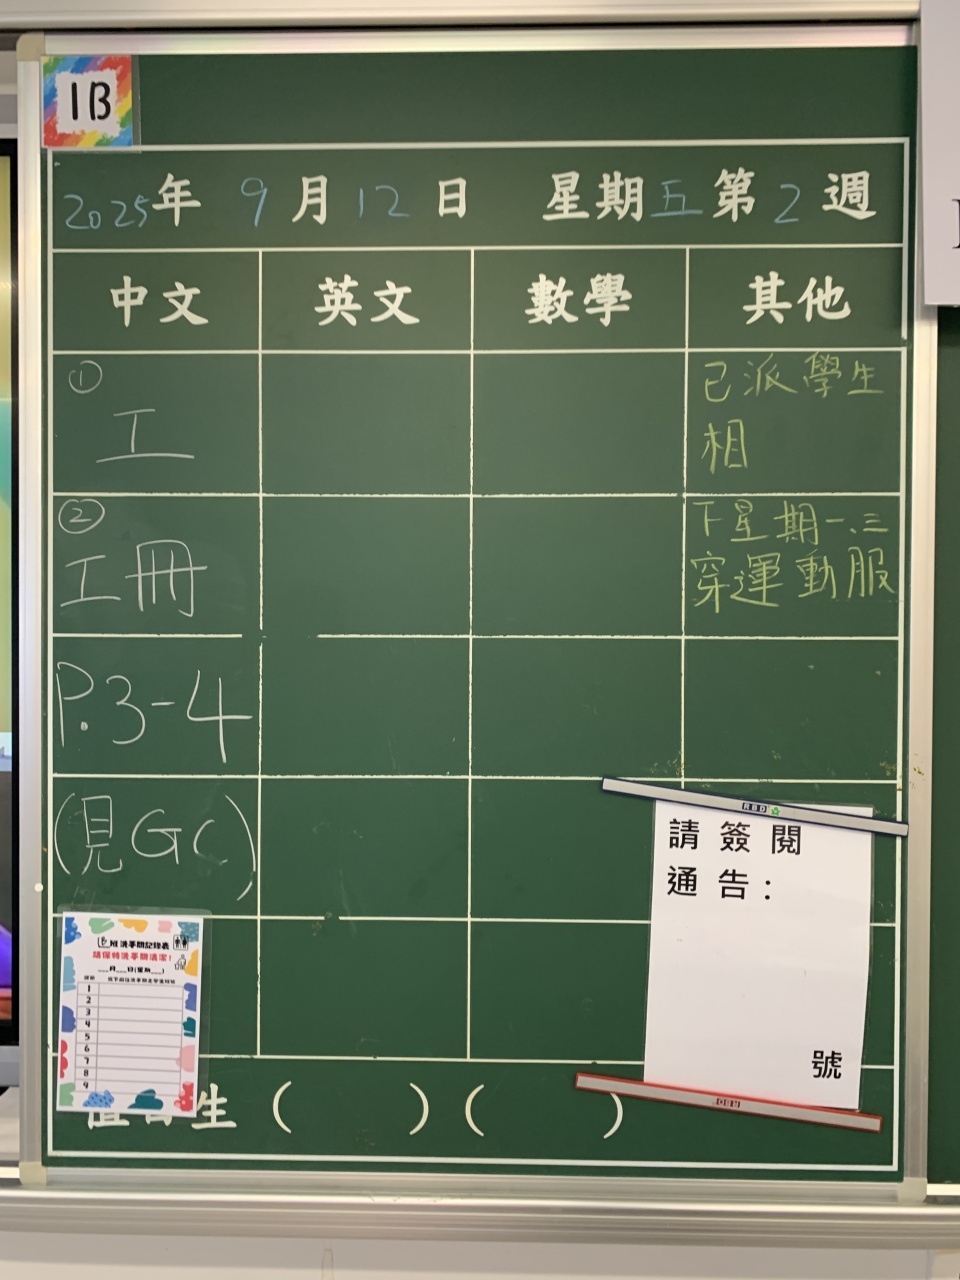 1B
2025年 9月12日 星期五 第2週
中文 英文 數學 其他
① 工
已派學生
相
② 工冊
下星期一、三
穿運動服
P.3-4
(見GC)
RBD
請簽閱
通告:
號
班洗手間記錄表
請保持洗手間清潔!
___月___日(星期___)
1
2
3
4
5
6
7
8
9
生 ( ) ( )